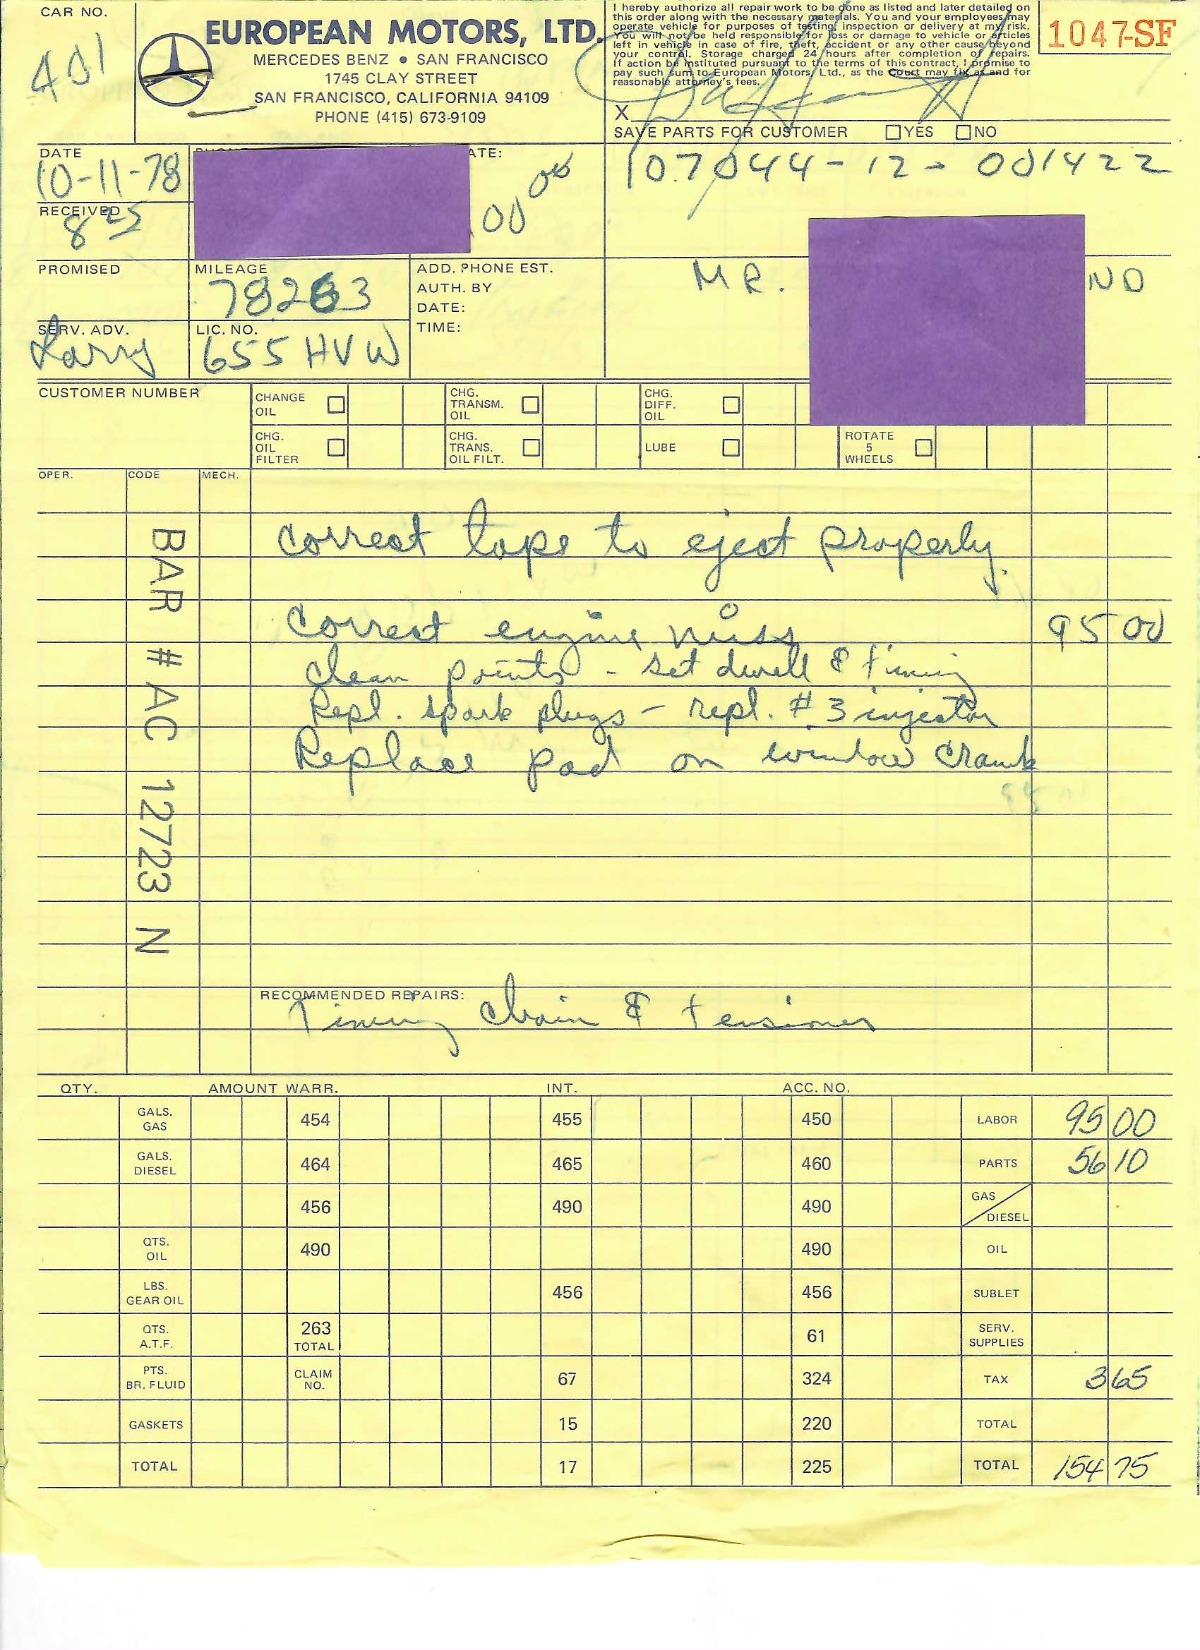 CAR NO.
401
EUROPEAN MOTORS, LTD.
MERCEDES BENZ • SAN FRANCISCO
1745 CLAY STREET
SAN FRANCISCO, CALIFORNIA 94109
PHONE (415) 673-9109
I hereby authorize all repair work to be done as listed and later detailed on
this order along with the necessary materials. You and your employees may
operate vehicle for purposes of testing, inspection or delivery at my risk.
You will not be held responsible for loss or damage to vehicle or articles
left in vehicle in case of fire, theft, accident or any other cause beyond
your control. Storage charged 24 hours after completion of repairs.
If action be instituted pursuant to the terms of this contract, I promise to
pay such sum to European Motors, Ltd., as the Court may fix as and for
reasonable attorney's fees.
1047-SF
X
SAVE PARTS FOR CUSTOMER YES NO
DATE
10-11-78
ATE:
00
107044-12-001422
RECEIVED
8 25
PROMISED
MILEAGE
78263
ADD. PHONE EST.
AUTH. BY
DATE:
TIME:
MR.
ND
SERV. ADV.
Larry
LIC. NO.
655 HVW
CUSTOMER NUMBER
CHANGE OIL
CHG. TRANSM. OIL
CHG. DIFF. OIL
CHG. OIL FILTER
CHG. TRANS. OIL FILT.
LUBE
ROTATE 5 WHEELS
OPER. CODE MECH.
BAR # AC 12723 N
Correct tape to eject properly.
Correct engine miss 95 00
clean points - set dwell & timing
Repl. spark plugs - repl. #3 injector
Replace pad on window crank
RECOMMENDED REPAIRS:
Timing chain & tensioner
QTY. AMOUNT WARR. INT. ACC. NO.
GALS. GAS 454 455 450 LABOR 95 00
GALS. DIESEL 464 465 460 PARTS 56 10
456 490 490 GAS / DIESEL
QTS. OIL 490 490 OIL
LBS. GEAR OIL 456 456 SUBLET
QTS. A.T.F. 263 TOTAL 61 SERV. SUPPLIES
PTS. BR. FLUID CLAIM NO. 67 324 TAX 3 65
GASKETS 15 220 TOTAL
TOTAL 17 225 TOTAL 154 75